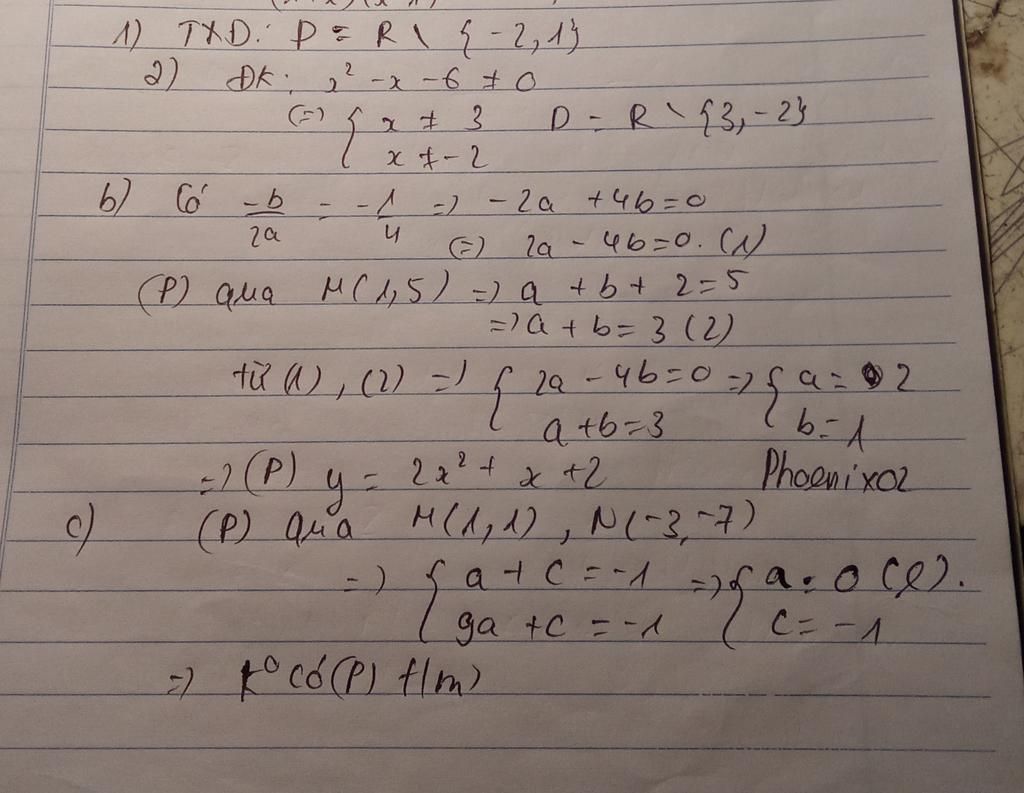 1) TXD: D = R \ {-2, 1}
2) ĐK: x² - x - 6 ≠ 0
(=) { x ≠ 3 D = R \ {3, -2}
x ≠ -2
b) Có -b/2a = -1/4 => -2a + 4b = 0
(=) 2a - 4b = 0. (1)
(P) qua M(1, 5) => a + b + 2 = 5
=> a + b = 3 (2)
từ (1), (2) => { 2a - 4b = 0 => { a = 2
a + b = 3 b = 1
=> (P) y = 2x² + x + 2 Phoenix02
c) (P) qua M(1, 1), N(-3, -7)
=> { a + c = -1 => { a = 0 (l).
9a + c = -1 c = -1
=> k⁰ có (P) t/m)